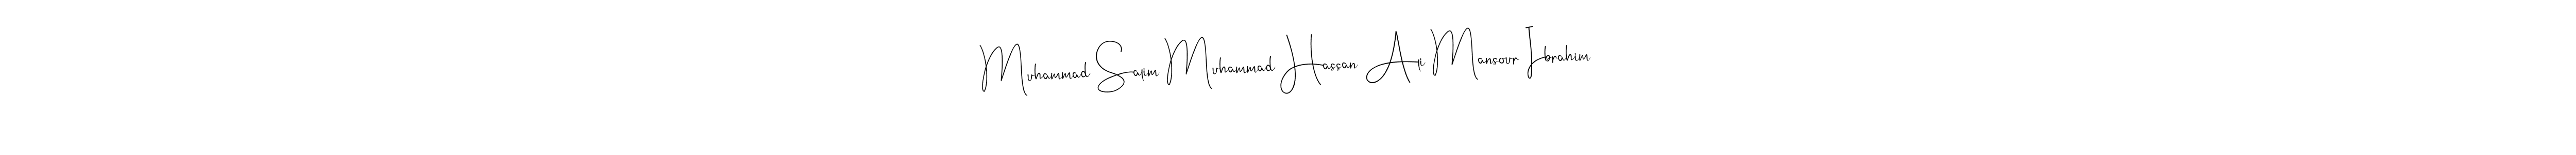 Muhammad Salim Muhammad Hassan Ali Mansour Ibrahim